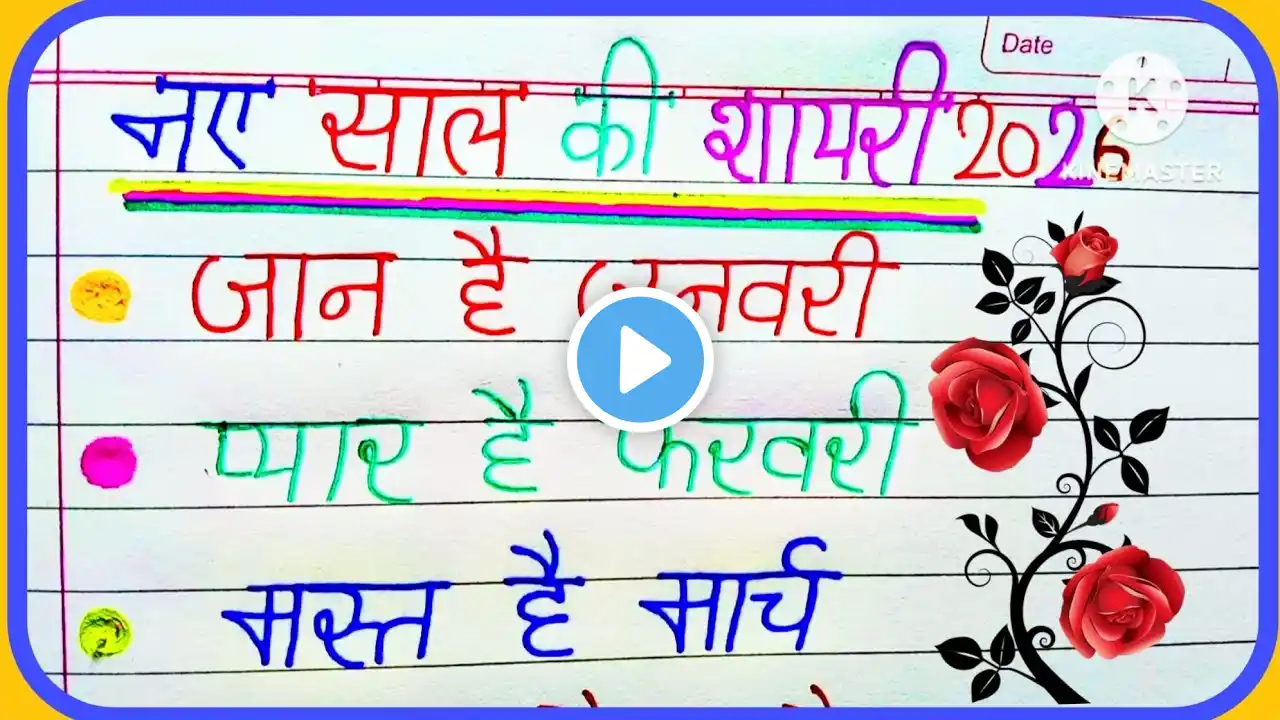 Date
नए साल की शायरी 2026
K
KINEMASTER
जान है जनवरी
प्यार है फरवरी
मस्त है मार्च